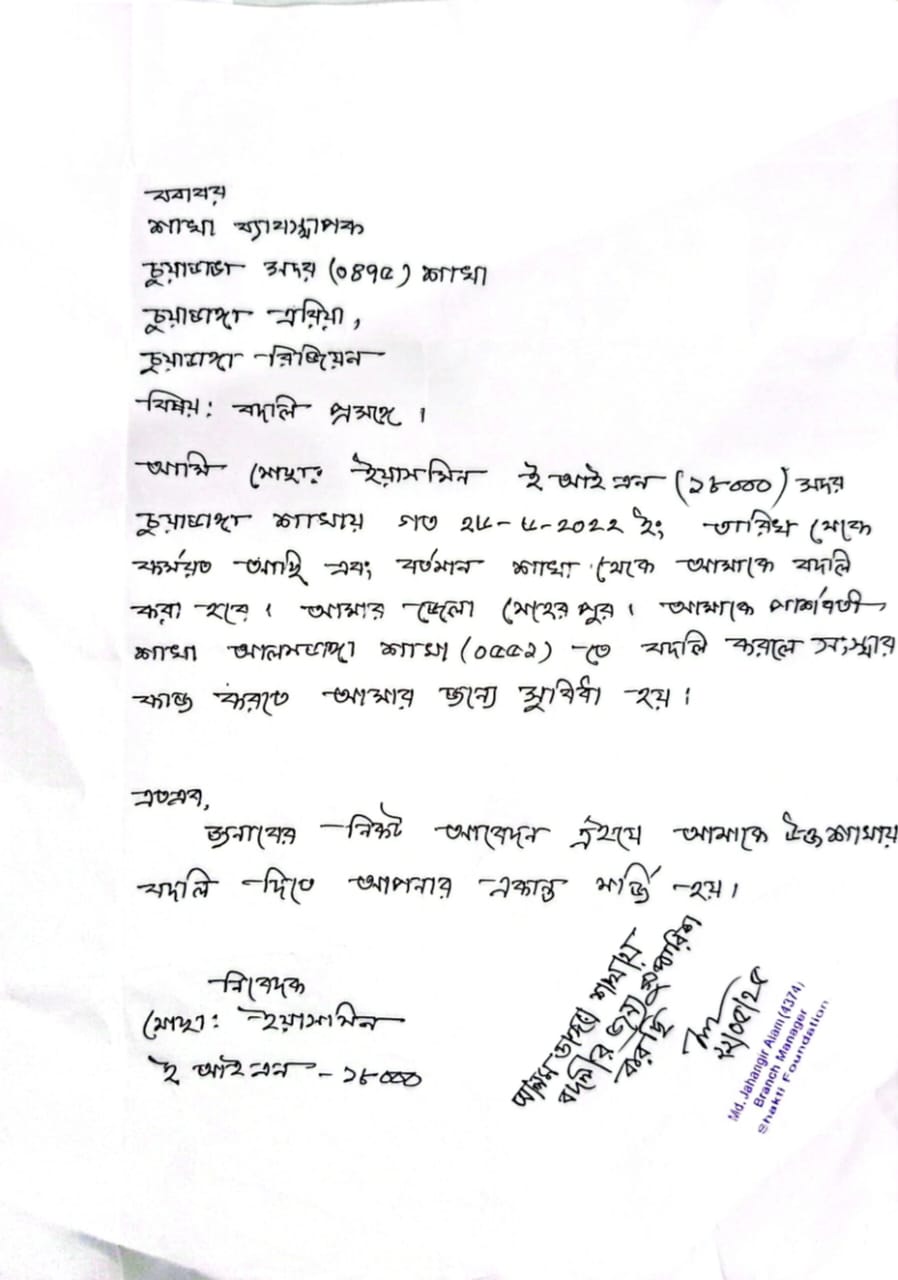 বরাবর
শাখা ব্যাবস্থাপক
চুয়াডাঙ্গা সদর (০৪৭৫) শাখা
চুয়াডাঙ্গা এরিয়া,
চুয়াডাঙ্গা রিজিয়ন
বিষয়: বদলি প্রসঙ্গে।
আমি মোছাঃ ইয়াসমিন ই আই এন (১৮০০০) সদর
চুয়াডাঙ্গা শাখায় গত ২৮-৮-২০২২ ইং তারিখ থেকে
কর্মরত আছি এবং বর্তমান শাখা থেকে আমাকে বদলি
করা হবে। আমার জেলা মেহেরপুর। আমাকে পার্শ্ববর্তী
শাখা আলমডাঙ্গা শাখা (০৫৫২) -তে বদলি করলে সংস্থার
কাজ করতে আমার জন্যে সুবিধা হয়।
এতএব,
জনাবের নিকট আবেদন এইযে আমাকে উক্ত শাখায়
বদলি দিতে আপনার একান্ত মর্জি হয়।
নিবেদক
মোছা: ইয়াসমিন
ই আই এন - ১৮০০০
আলম ডাঙ্গা শাখায়
বদলীর জন্য সুপারিশ
করছি
Md. Jahangir Alam (4374)
Branch Manager
Shakti Foundation